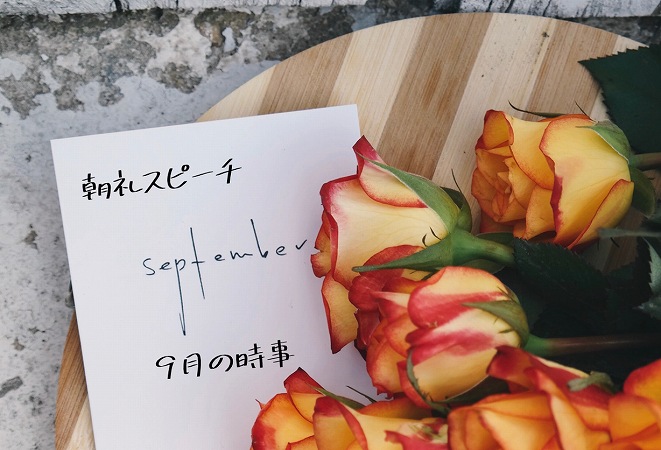 朝礼スピーチ
september
9月の時事